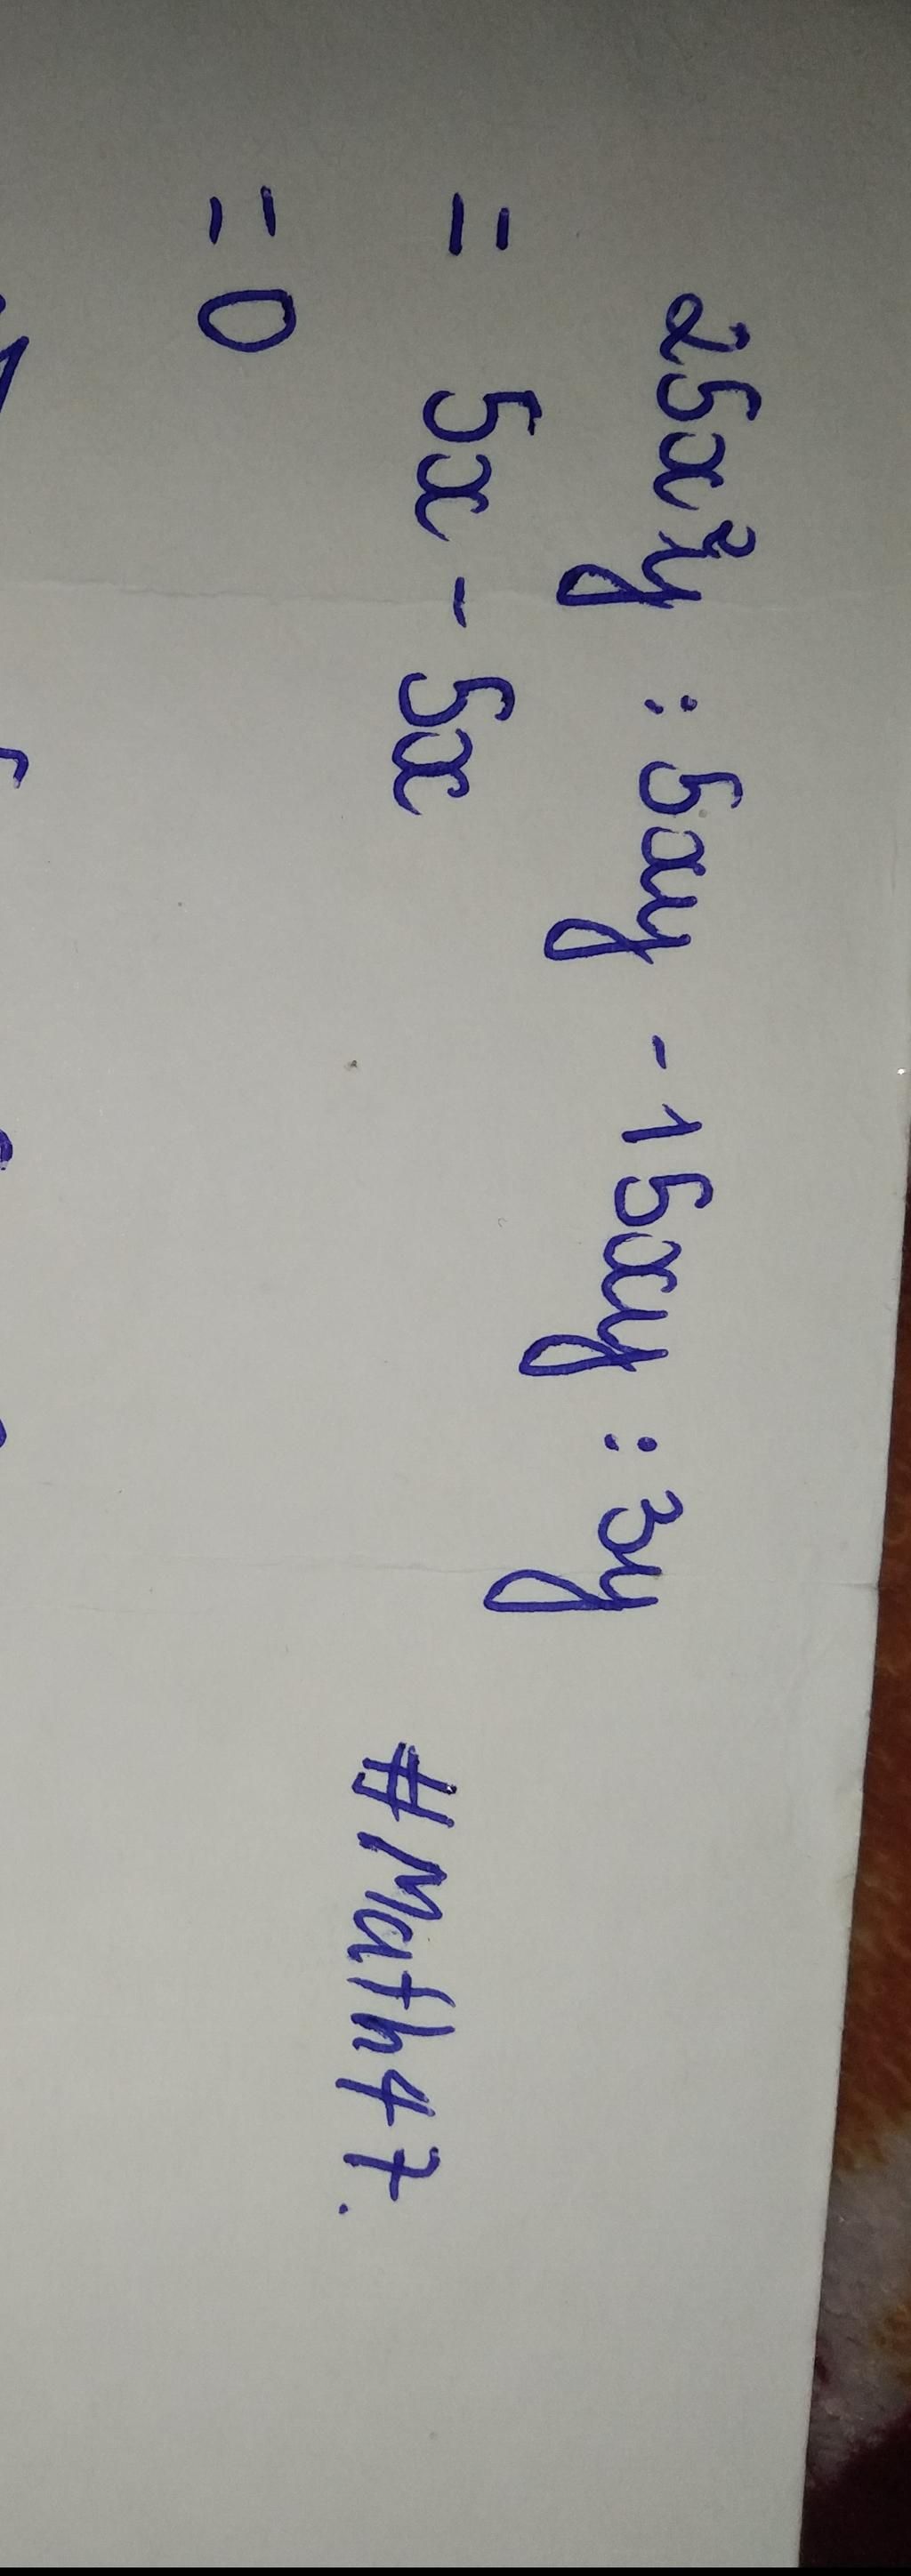 25x²y : 5xy - 15xy : 3y
= 5x - 5x
= 0
#Math47.